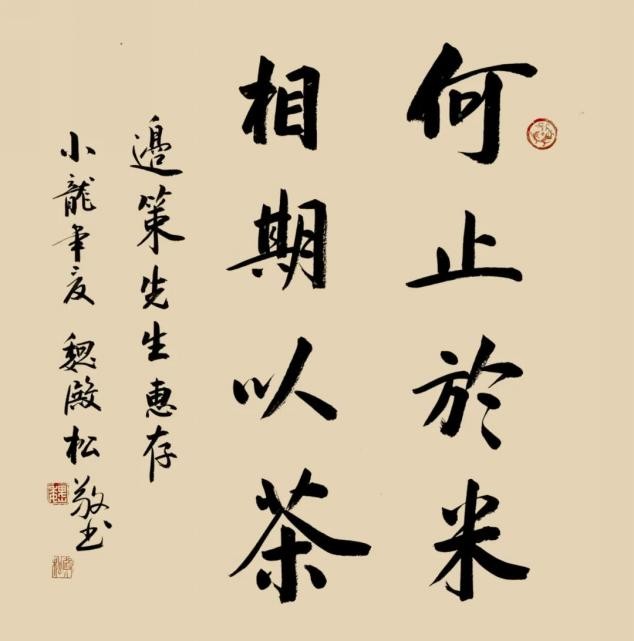 何止於米
相期以茶
邊策先生惠存
小龍年夏 魏殿松敬书